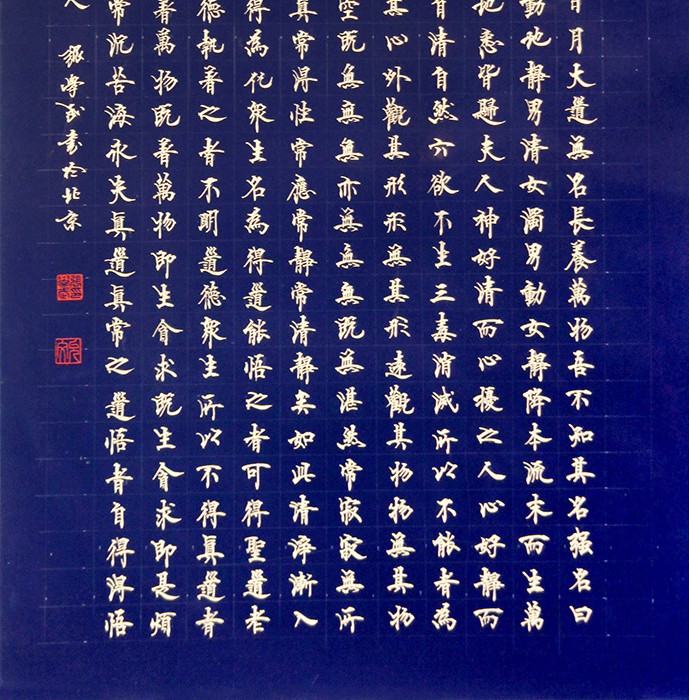 日月大道無名長養萬物吾不知其名强名曰
動地靜男清女濁男動女靜降本流末而生萬
地悉皆歸夫人神好清而心擾之人心好靜而
自清自然六欲不生三毒消滅所以不能者為
其心外觀其形形無其形遠觀其物物無其物
空既無無無亦無無無既無湛然常寂寂無所
真常得性常應常靜常清靜矣如此清淨漸入
得為化衆生名為得道能悟之者可得聖道老
德執著之者不明道德衆生所以不得真道者
著萬物既著萬物即生貪求既生貪求即是煩
常沉苦海永失真道真常之道悟者自得得悟
張學武書於北京